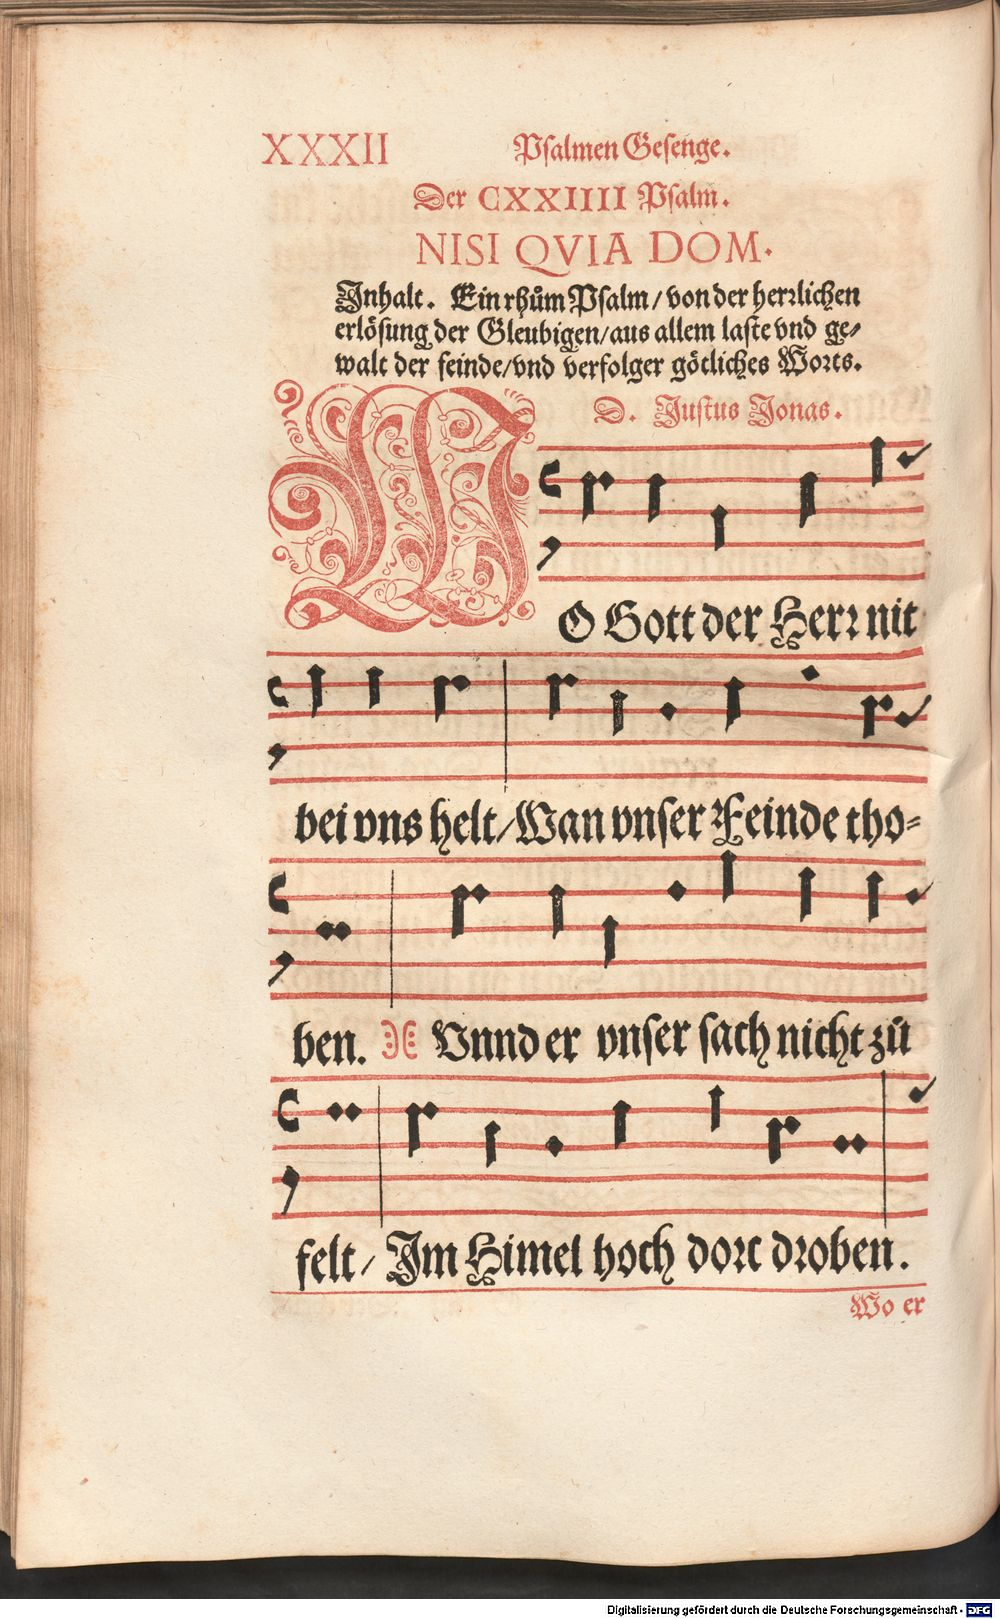 XXXII Psalmen Gesenge.
Der CXXIIII Psalm.
NISI QVIA DOM.
Inhalt. Ein rhům Psalm/ von der herrlichen
erlösung der Gleubigen/aus allem laste vnd ge/
walt der feinde/vnd verfolger götliches Worts.
D. Justus Jonas.
WO Gott der Herr nit
bei vns helt/Wan vnser Feinde tho=
ben. Vnnd er vnser sach nicht zů
felt/ Im Himel hoch dort droben.
Wo er
Digitalisierung gefördert durch die Deutsche Forschungsgemeinschaft - DFG